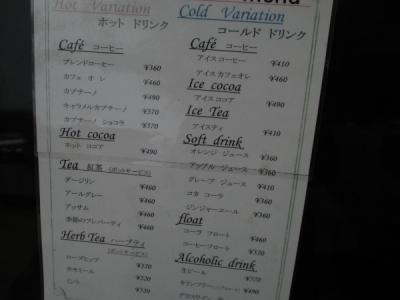 menu
Hot Variation
ホット ドリンク
Café コーヒー
ブレンドコーヒー ¥360
カフェ オレ ¥460
カプチーノ ¥470
キャラメルカプチーノ ¥370
カプチーノ ショコラ ¥370
Hot cocoa
ホット ココア ¥490
Tea 紅茶 (ポットサービス)
ダージリン ¥460
アールグレー ¥460
アッサム ¥460
季節のフレバーティ ¥460
Herb Tea ハーブティ (ポットサービス)
ローズヒップ ¥520
カモミール ¥520
ミント
Cold Variation
コールド ドリンク
Café コーヒー
アイスコーヒー ¥410
アイス カフェオレ ¥460
Ice cocoa
アイス ココア ¥490
Ice Tea
アイスティ ¥410
Soft drink
オレンジ ジュース ¥360
アップル ジュース ¥360
グレープ ジュース ¥410
コカ コーラ ¥360
ジンジャーエール ¥360
float
コーラ フロート ¥460
コーヒーフロート ¥560
Alcoholic drink
生ビール ¥520
キリンフリー
グラスワイン